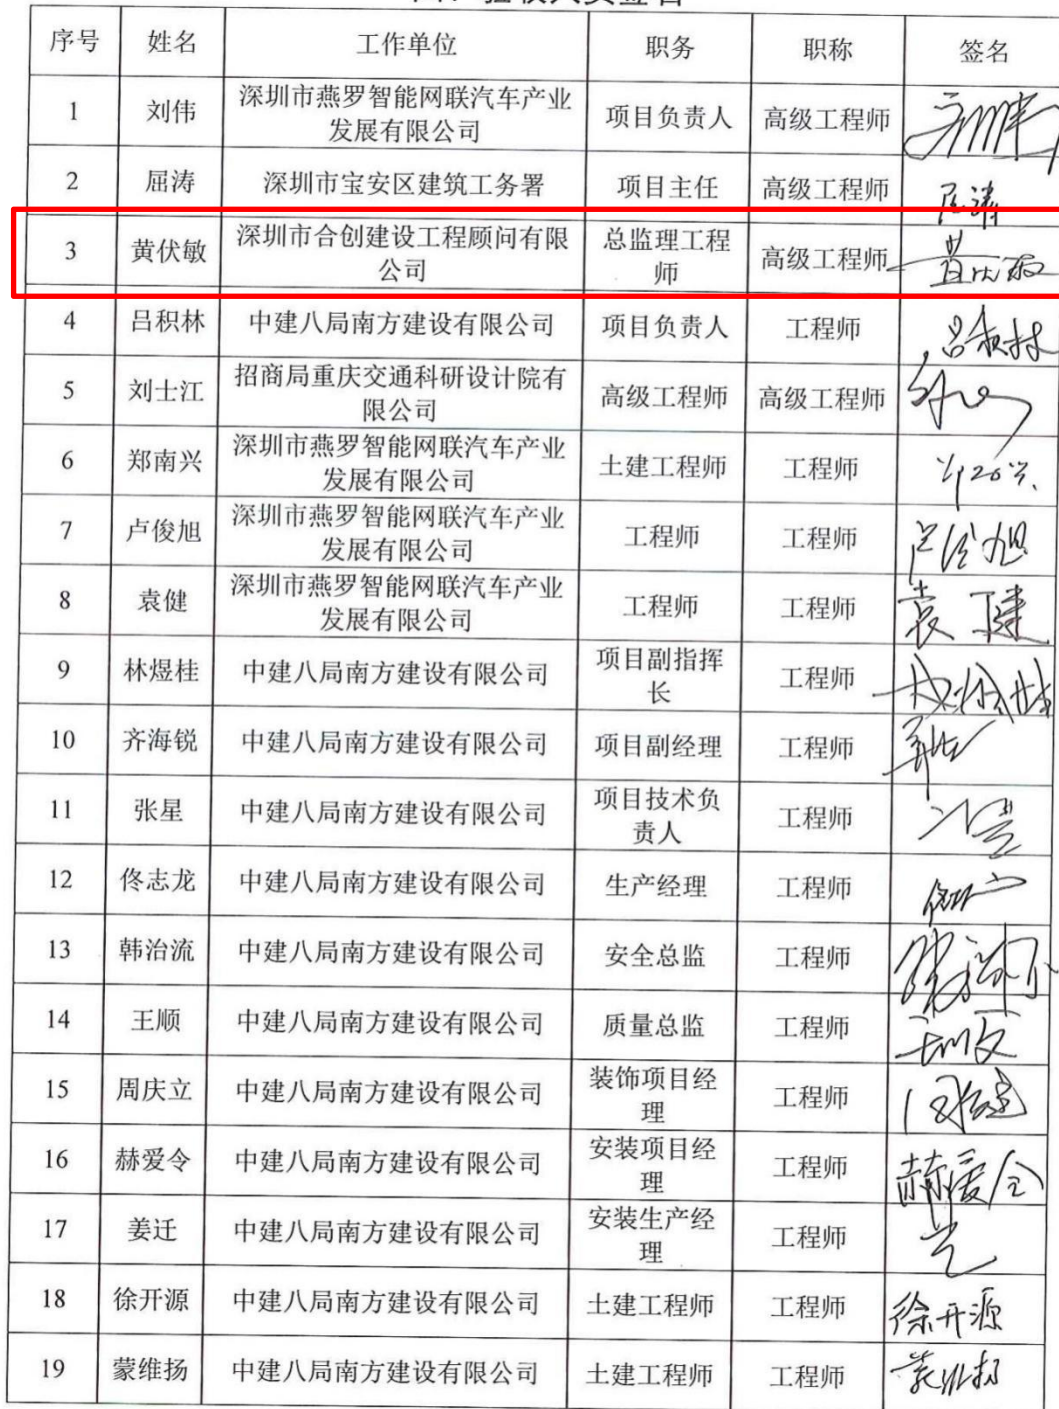 序号 姓名 工作单位 职务 职称 签名
1 刘伟 深圳市燕罗智能网联汽车产业发展有限公司 项目负责人 高级工程师
2 屈涛 深圳市宝安区建筑工务署 项目主任 高级工程师 屈涛
3 黄伏敏 深圳市合创建设工程顾问有限公司 总监理工程师 高级工程师
4 吕积林 中建八局南方建设有限公司 项目负责人 工程师 吕积林
5 刘士江 招商局重庆交通科研设计院有限公司 高级工程师 高级工程师
6 郑南兴 深圳市燕罗智能网联汽车产业发展有限公司 土建工程师 工程师
7 卢俊旭 深圳市燕罗智能网联汽车产业发展有限公司 工程师 工程师 卢俊旭
8 袁健 深圳市燕罗智能网联汽车产业发展有限公司 工程师 工程师 袁健
9 林煜桂 中建八局南方建设有限公司 项目副指挥长 工程师
10 齐海锐 中建八局南方建设有限公司 项目副经理 工程师
11 张星 中建八局南方建设有限公司 项目技术负责人 工程师
12 佟志龙 中建八局南方建设有限公司 生产经理 工程师
13 韩治流 中建八局南方建设有限公司 安全总监 工程师
14 王顺 中建八局南方建设有限公司 质量总监 工程师
15 周庆立 中建八局南方建设有限公司 装饰项目经理 工程师
16 赫爱令 中建八局南方建设有限公司 安装项目经理 工程师 赫爱令
17 姜迁 中建八局南方建设有限公司 安装生产经理 工程师
18 徐开源 中建八局南方建设有限公司 土建工程师 工程师 徐开源
19 蒙维扬 中建八局南方建设有限公司 土建工程师 工程师 蒙维扬